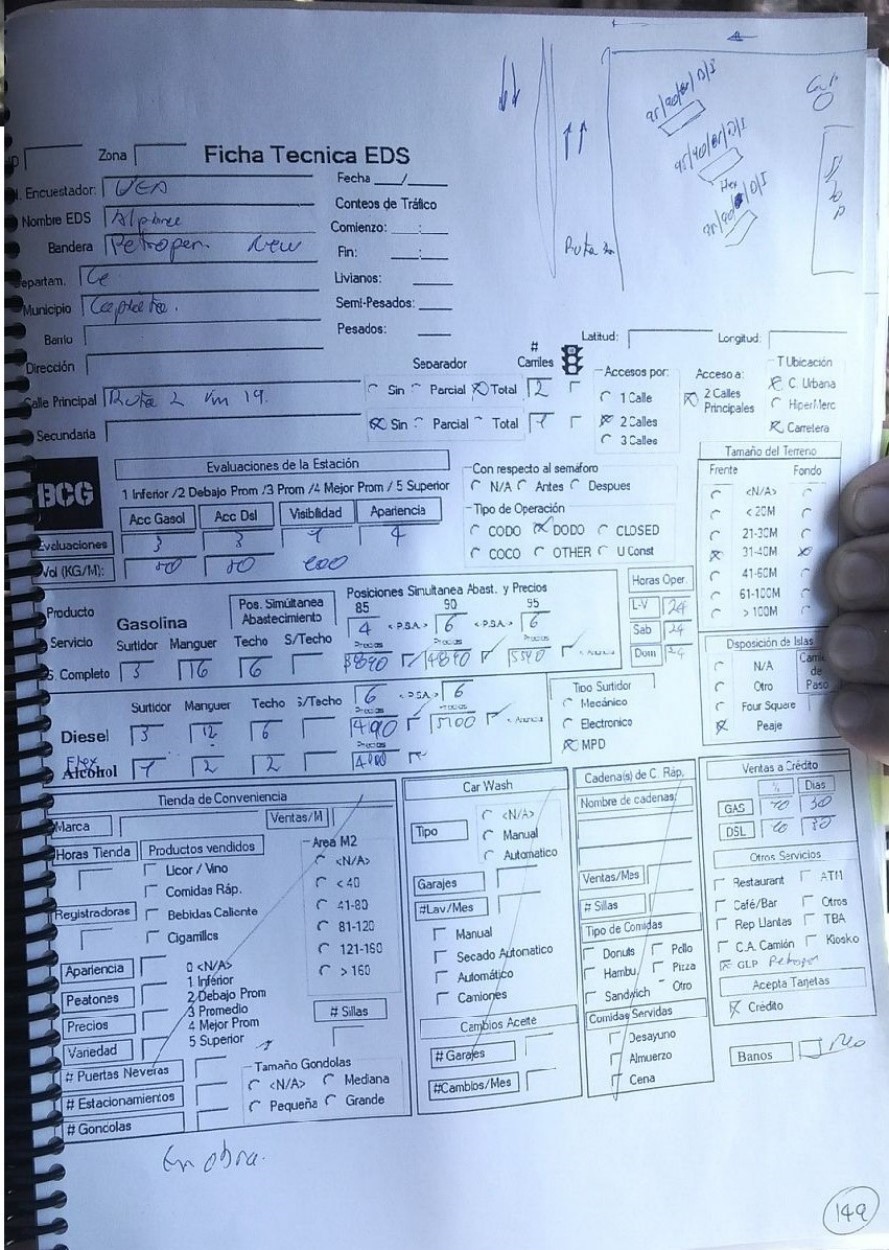 Zona
Ficha Tecnica EDS
N. Encuestador:
Fecha ___/___
Conteos de Tráfico
Nombre EDS
Comienzo: __:__
Bandera Petroper. New
Fin: __:__
Departam. Ce
Livianos:
Municipio
Semi-Pesados:
Barrio
Pesados:
Dirección
Latitud:
Longitud:
Separador
# Carriles
Accesos por:
Acceso a:
T Ubicación
Calle Principal Ruta 2 Km 19.
Sin Parcial Total 2
1 Calle
2 Calles Principales
C. Urbana
HiperMerc
Secundaria
Sin Parcial Total 1
2 Calles
3 Calles
Carretera
BCG
Evaluaciones de la Estación
1 Inferior /2 Debajo Prom /3 Prom /4 Mejor Prom / 5 Superior
Acc Gasol Acc Dsl Visibilidad Apariencia
Evaluaciones 3 3 4
Vol (KG/M):
Con respecto al semáforo
N/A Antes Despues
Tipo de Operación
CODO DODO CLOSED
COCO OTHER U Const
Tamaño del Terreno
Frente Fondo
<N/A>
< 20M
21-30M
31-40M
41-60M
61-100M
> 100M
Producto Gasolina
Pos. Simúltanea Abastecimiento
Posiciones Simultanea Abast. y Precios
85 90 95
4 < P.S.A. > 6 < P.S.A. > 6
Servicio Surtidor Manguer Techo S/Techo
S. Completo 3 16 6
Horas Oper.
L-V 24
Sab 24
Dom 24
Surtidor Manguer Techo S/Techo 6 < P.S.A. > 6
Diesel 3 12 6 4190 5100
Flex
Alcohol 1 2 2
Tipo Surtidor
Mecánico
Electronico
MPD
Disposición de Islas
N/A
Otro
Four Square
Peaje
Tienda de Conveniencia
Marca
Ventas/M
Horas Tienda
Productos vendidos
Licor / Vino
Comidas Ráp.
Registradoras
Bebidas Caliente
Cigarrillos
Area M2
<N/A>
< 40
41-80
81-120
121-160
> 160
Apariencia
Peatones
Precios
Variedad
0 <N/A>
1 Inferior
2 Debajo Prom
3 Promedio
4 Mejor Prom
5 Superior
# Sillas
# Puertas Neveras
# Estacionamientos
# Goncolas
Tamaño Gondolas
<N/A> Mediana
Pequeña Grande
Car Wash
Tipo
<N/A>
Manual
Automatico
Garajes
#Lav/Mes
Manual
Secado Automatico
Automático
Camiones
Cambios Aceite
# Garajes
#Cambios/Mes
Cadena(s) de C. Ráp.
Nombre de cadenas:
Ventas/Mes
# Sillas
Tipo de Comidas
Donuts Pollo
Hambu. Pizza
Sandwich Otro
Comidas Servidas
Desayuno
Almuerzo
Cena
Ventas a Crédito
% Dias
GAS
DSL
Otros Servicios
Restaurant ATM
Café/Bar Otros
Rep Llantas TBA
C.A. Camión Kiosko
GLP
Acepta Tarjetas
Crédito
Banos
En obra.
149